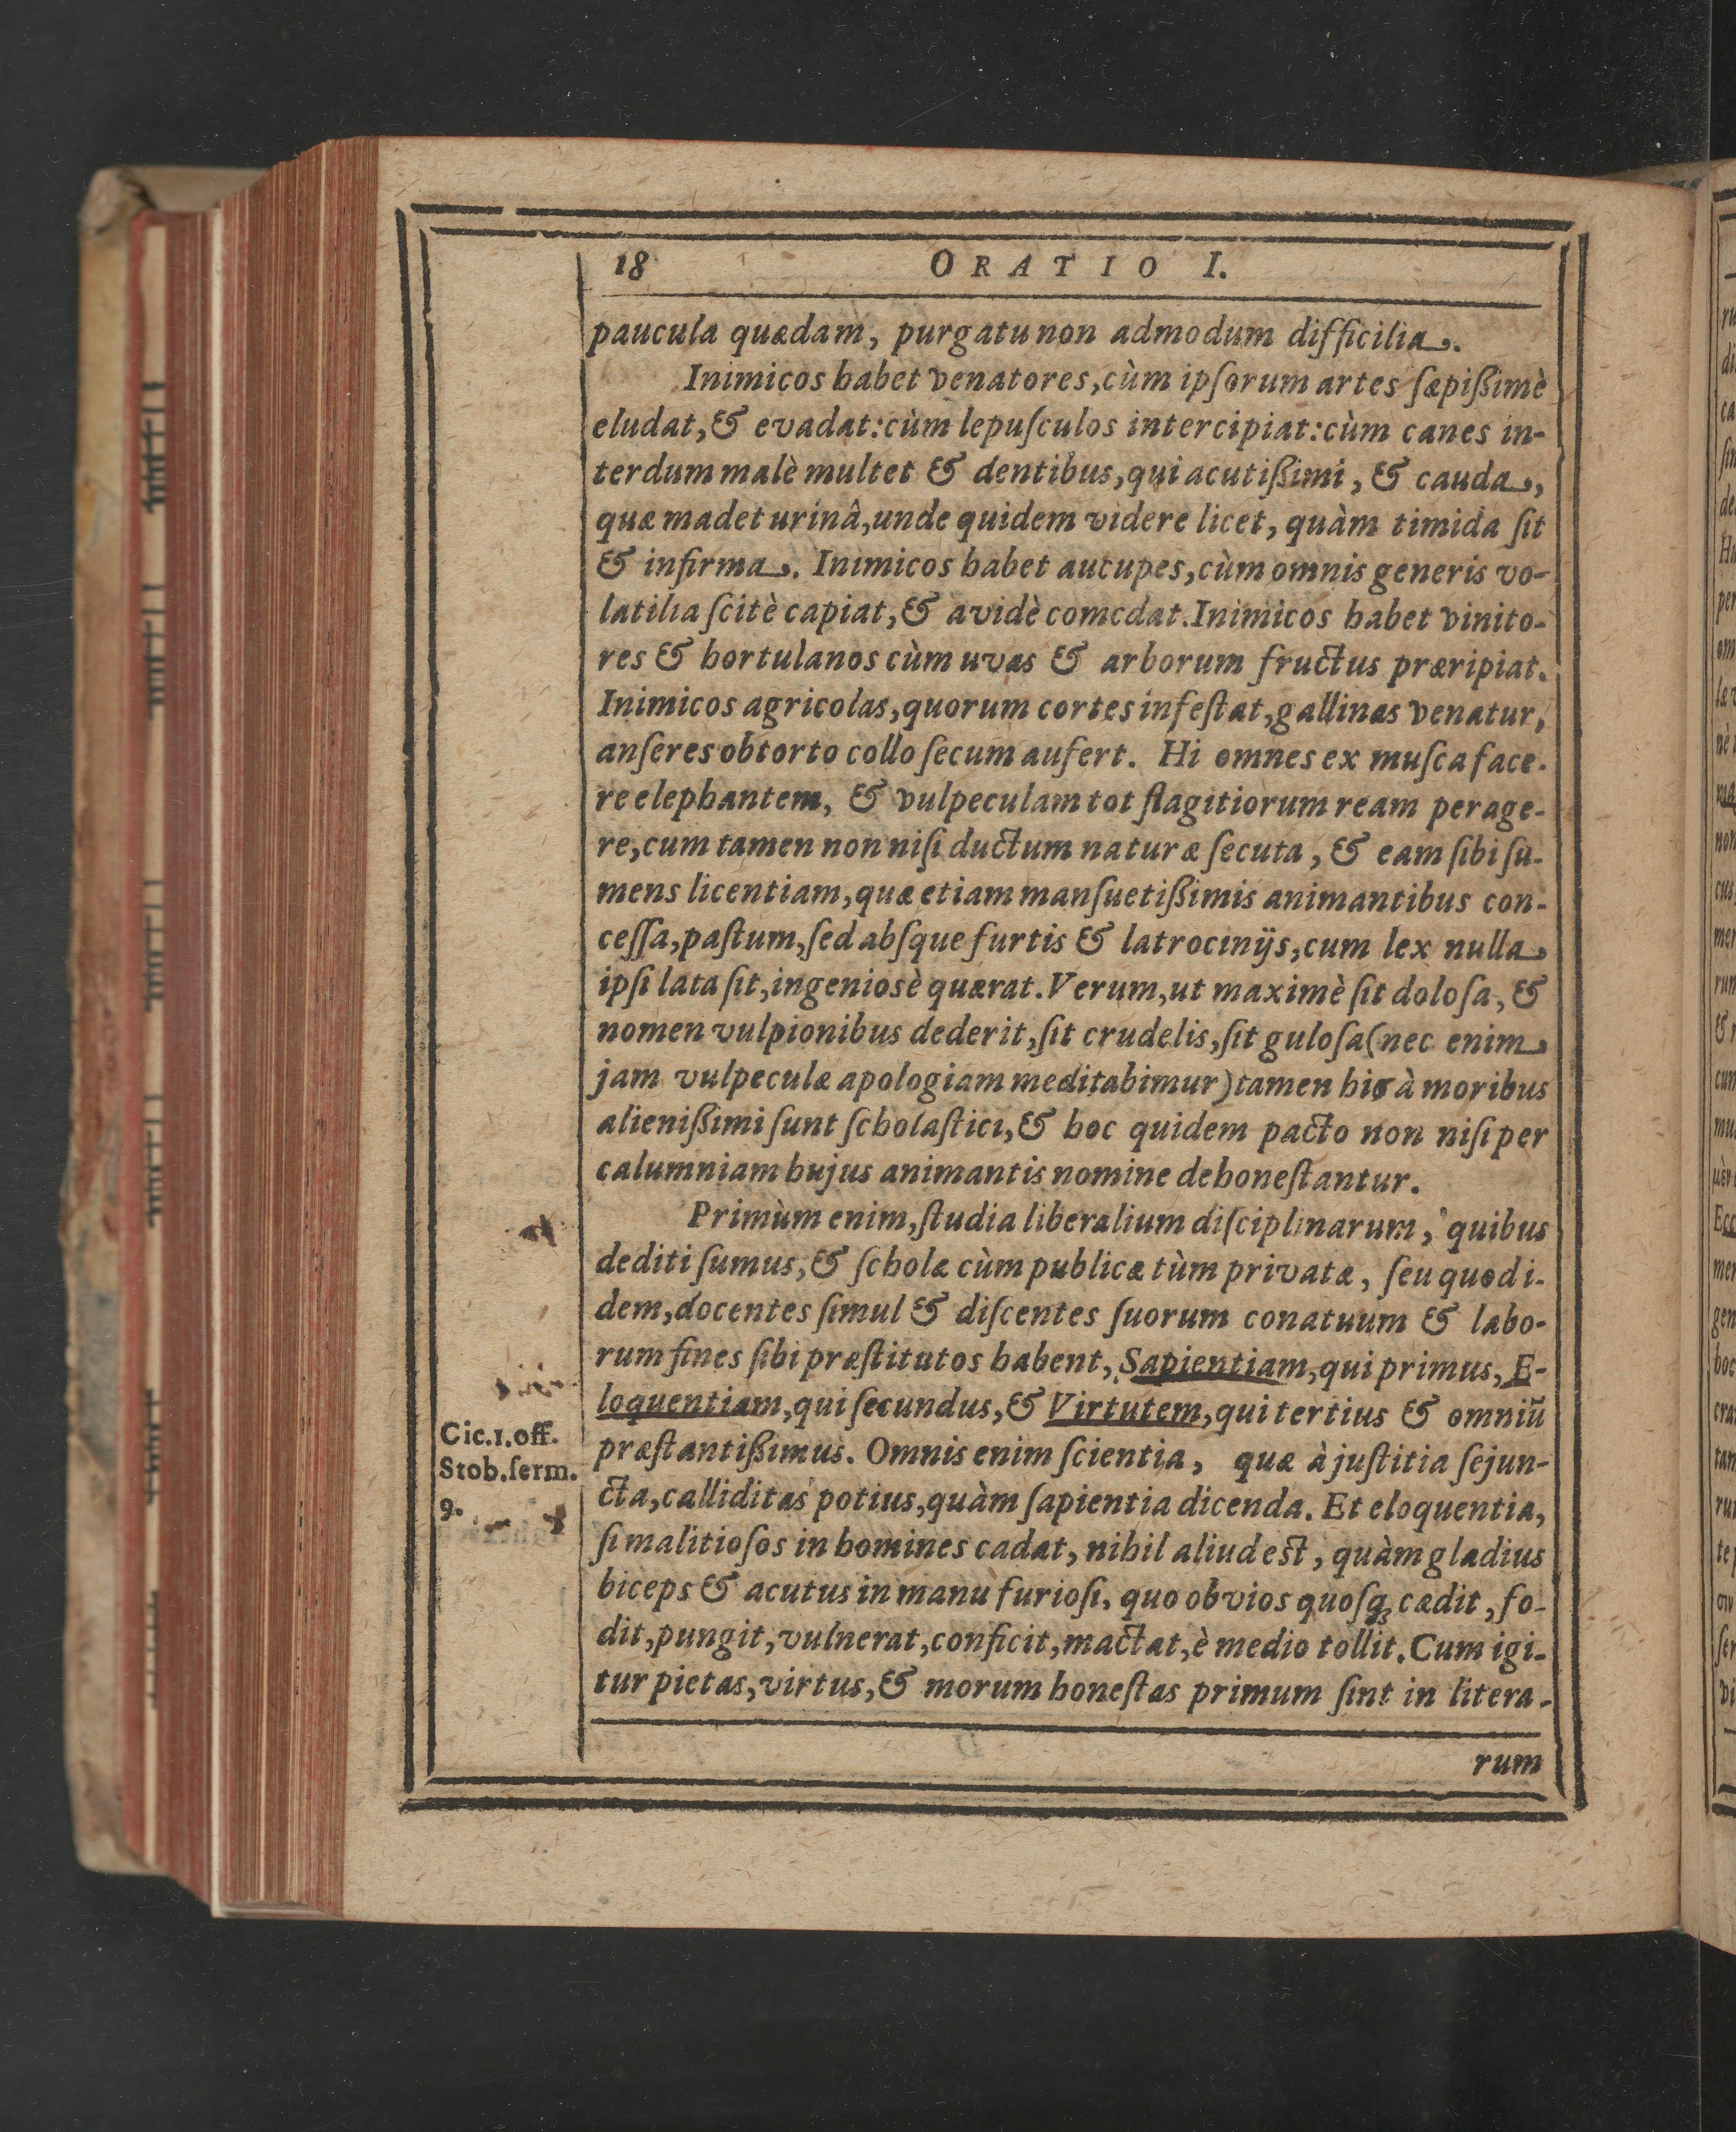 18 ORATIO I.
paucula quædam, purgatu non admodum difficilia.
Inimicos habet venatores, cùm ipſorum artes ſæpißimè
eludat, & evadat: cùm lepuſculos intercipiat: cùm canes in-
terdum malè multet & dentibus, qui acutißimi, & cauda,
quæ madet urinâ, unde quidem videre licet, quàm timida ſit
& infirma. Inimicos habet aucupes, cùm omnis generis vo-
latilia ſcitè capiat, & avidè comedat. Inimicos habet vinito-
res & hortulanos cùm uvas & arborum fructus præripiat.
Inimicos agricolas, quorum cortes infeſtat, gallinas venatur,
anſeres obtorto collo ſecum aufert. Hi omnes ex muſca face-
re elephantem, & vulpeculam tot flagitiorum ream perage-
re, cum tamen non niſi ductum naturæ ſecuta, & eam ſibi ſu-
mens licentiam, quæ etiam manſuetißimis animantibus con-
ceſſa, paſtum, ſed abſque furtis & latrocinijs, cum lex nulla
ipſi lata ſit, ingeniosè quærat. Verum, ut maximè ſit doloſa, &
nomen vulpionibus dederit, ſit crudelis, ſit guloſa (nec enim
jam vulpeculæ apologiam meditabimur) tamen his à moribus
alienißimi ſunt ſcholaſtici, & hoc quidem pacto non niſi per
calumniam hujus animantis nomine dehoneſtantur.
Primùm enim, ſtudia liberalium diſciplinarum, quibus
dediti ſumus, & ſcholæ cùm publicæ tùm privatæ, ſeu quod i-
dem, docentes ſimul & diſcentes ſuorum conatuum & labo-
rum fines ſibi præſtitutos habent, Sapientiam, qui primus, E-
loquentiam, qui ſecundus, & Virtutem, qui tertius & omniũ
præſtantißimus. Omnis enim ſcientia, quæ à juſtitia ſejun-
cta, calliditas potius, quàm ſapientia dicenda. Et eloquentia,
ſi malitioſos in homines cadat, nihil aliud eſt, quàm gladius
biceps & acutus in manu furioſi, quo obvios quoſq; cædit, fo-
dit, pungit, vulnerat, conficit, mactat, è medio tollit. Cum igi-
tur pietas, virtus, & morum honeſtas primum ſint in litera-
rum
Cic. 1. off.
Stob. ſerm.
9.